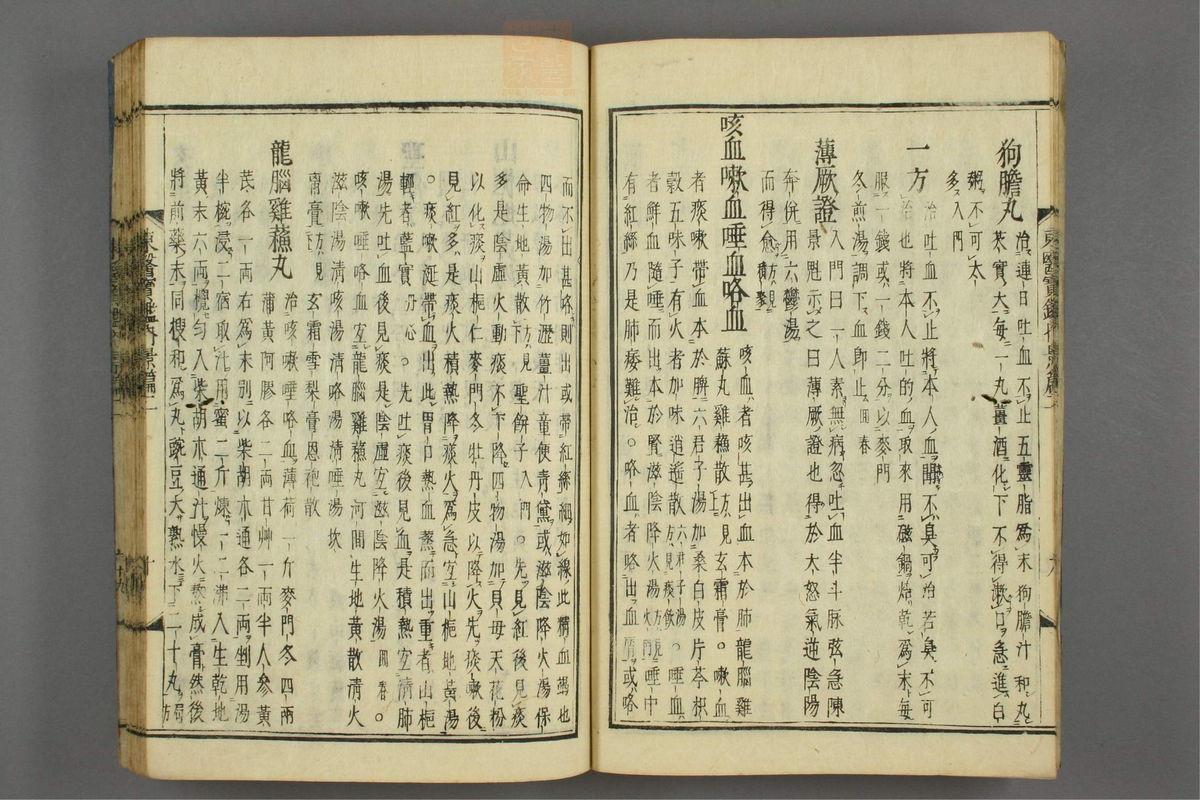 狗膽丸 治連日吐血不止五靈脂爲末狗膽汁和丸
芡實大每一丸薑酒化下不得漱口急進白
粥不可太
多入門
一方 治吐血不止將本人血聞不臭可治若臭不可
治也將本人吐的血取來用磁鍋焙乾爲末每
服一錢或一錢二分以麥門
冬煎湯調下血即止回春
薄厥證 入門曰一人素無病忽吐血半斗脉弦急陳
景䰟示之曰薄厥證也得於大怒氣逆陰陽
奔併用六鬱湯
而得愈
咳血嗽血唾血咯血 咳血者咳甚出血本於肺龍腦雞
蘇丸雞蘇散方見上玄霜膏。嗽血
者痰嗽帶血本於脾六君子湯加桑白皮片芩枳
殼五味子有火者加味逍遙散六君子湯方見痰飮。唾血
者鮮血隨唾而出本於腎滋陰降火湯方見火門唾中
有紅絲乃是肺痿難治。咯血者咯出血屑或咯
而不出甚咯則出或帶紅絲細如線此精血竭也
四物湯加竹瀝薑汁童便靑黛或滋陰降火湯保
命生地黃散方見下聖餅子入門。先見紅後見痰
多是陰虛火動痰不下降四物湯加貝母天花粉
以化痰山梔仁麥門冬牡丹皮以降火先痰嗽後
見紅多是痰火積熱降痰火爲急宜山梔地黃湯
。痰嗽涎帶血出此胃口熱血蒸而出重者山梔
輕者藍實丹心。先吐痰後見血是積熱宜淸肺
湯先吐血後見痰是陰虛宜滋陰降火湯回春。
咳嗽唾咯血宜龍腦雞蘇丸河間生地黃散淸火
滋陰湯淸咳湯淸咯湯淸唾湯坎
离膏方見上玄霜雪梨膏恩袍散
龍腦雞蘇丸 治咳嗽唾咯血薄荷一斤麥門冬四兩
蒲黃阿膠各二兩甘艸一兩半人參黃
芪各一兩右爲末別以柴胡木通各二兩剉用湯
半椀浸一二宿取汁用蜜二斤煉一二沸入生乾地
黃末六兩攪勻入柴胡木通汁慢火熬成膏然後
將前藥末同搜和爲丸豌豆大熟水下二十丸局方